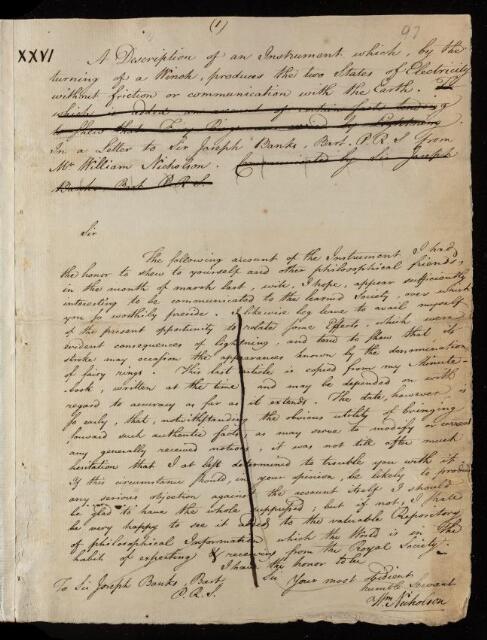 (1)
97
XXVI
A Description of an Instrument, which, by the
turning of a Winch, produces the two States of Electricity
without friction or communication with the Earth. To
which is added, an account of
to shew that Fairy Rings are caused by Lightning.
In a Letter to Sir Joseph Banks, Bart. P.R.S. From
Mr. William Nicholson. Communicated by Sir Joseph
Banks Bart P.R.S.
Sir
The following account of the Instrument, I had
the honor to shew to yourself and other philosophical friends,
in the month of march last, will, I hope, appear sufficiently
interesting to be communicated to the learned Society, over which
you so worthily preside. I likewise beg leave to avail myself
of the present opportunity to relate some Effects, which were
evident consequences of lightning, and tend to shew that its
stroke may occasion the appearances known by the denomination
of fairy rings. This last article is copied from my Minute-
book, written at the time and may be depended on with
regard to accuracy as far as it extends. The date, however is
so early, that, notwithstanding the obvious utility of bringing
forward such authentic facts, as may serve to modify or correct
any generally received notions, it was not till after much
hesitation that I at last determined to trouble you with it.
If this circumstance should, in your opinion, be likely to produce
any serious objection against the account itself, I should
be glad to have the whole suppressed; but if not, I shall
be very happy to see it added to the valuable Repository
of philosophical Information which the World is in the
habit of expecting & receiving from the Royal Society.
I have the honor to be
Sir Your most obedient
humble servant
To Sir Joseph Banks, Bart.
P.R.S.
Wm. Nicholson